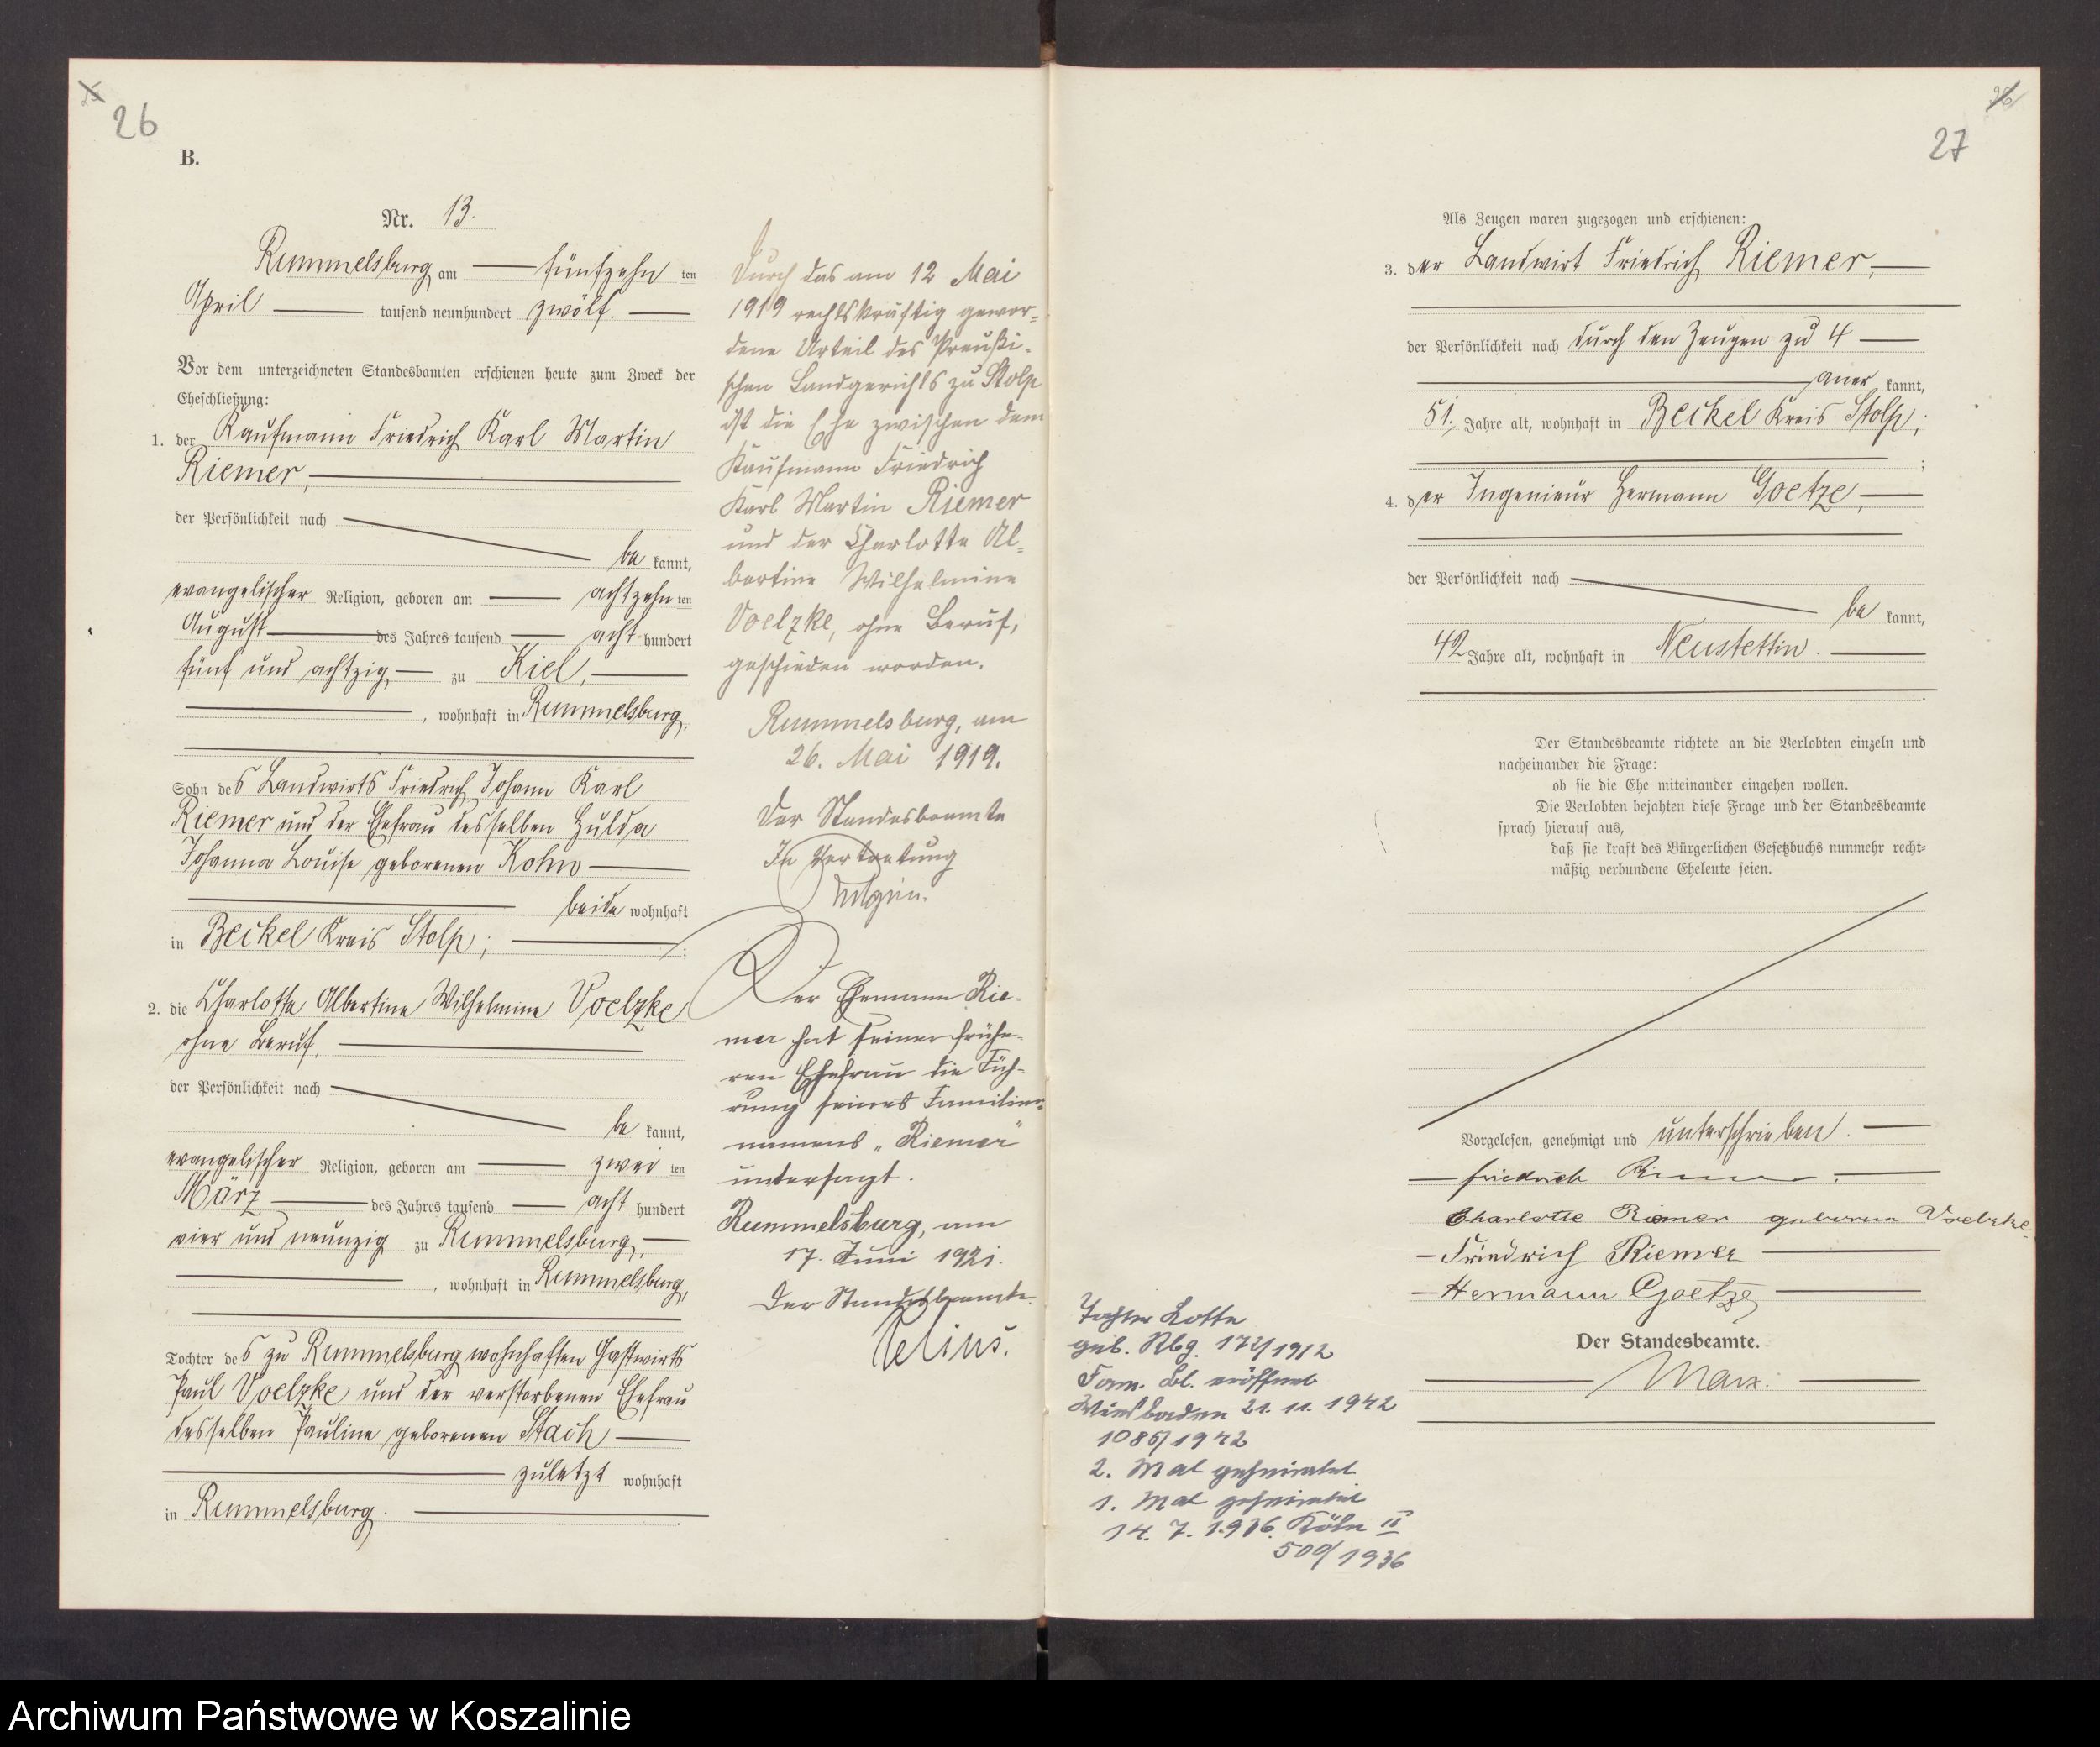 26
B.
Nr. 13.
Rummelsburg am fünfzehn ten
April tausend neunhundert zwölf.
Vor dem unterzeichneten Standesbamten erschienen heute zum Zweck der
Eheschließung:
1. der Kaufmann Friedrich Karl Martin
Riemer,
der Persönlichkeit nach
be kannt,
evangelischer Religion, geboren am achtzehn ten
August des Jahres tausend acht hundert
fünf und achtzig zu Kiel,
, wohnhaft in Rummelsburg,
Sohn des Landwirts Friedrich Johann Karl
Riemer und der Ehefrau desselben Hulda
Johanna Louise geborenen Kohn
beide wohnhaft
in Beikel Kreis Stolp;
2. die Charlotte Albertine Wilhelmine Voelzke
ohne Beruf,
der Persönlichkeit nach
be kannt,
evangelischer Religion, geboren am zwei ten
März des Jahres tausend acht hundert
vier und neunzig zu Rummelsburg,
, wohnhaft in Rummelsburg,
Tochter des zu Rummelsburg wohnhaften Gastwirts
Paul Voelzke und der verstorbenen Ehefrau
desselben Pauline geborenen Stach
zuletzt wohnhaft
in Rummelsburg.
Durch das am 12 Mai
1919 rechtskräftig gewor=
dene Urteil des Preußi-
schen Landgerichts zu Stolp
ist die Ehe zwischen dem
Kaufmann Friedrich
Karl Martin Riemer
und der Charlotte Al=
bertine Wilhelmine
Voelzke, ohne Beruf,
geschieden worden.
Rummelsburg, am
26. Mai 1919.
Der Standesbeamte
In Vertretung
Der Ehemann Rie-
mer hat seiner frühe-
ren Ehefrau die Füh-
rung seines Familien-
namens „Riemer"
untersagt.
Rummelsburg, am
17. Juni 1921.
Der Standesbeamte.
27
Als Zeugen waren zugezogen und erschienen:
3. der Landwirt Friedrich Riemer,
der Persönlichkeit nach durch den Zeugen zu 4
aner kannt,
51 Jahre alt, wohnhaft in Beikel Kreis Stolp;
4. der Ingenieur Hermann Goetze,
der Persönlichkeit nach
be kannt,
42 Jahre alt, wohnhaft in Neustettin.
Der Standesbeamte richtete an die Verlobten einzeln und
nacheinander die Frage:
ob sie die Ehe miteinander eingehen wollen.
Die Verlobten bejahten diese Frage und der Standesbeamte
sprach hierauf aus,
daß sie kraft des Bürgerlichen Gesetzbuchs nunmehr recht=
mäßig verbundene Eheleute seien.
Vorgelesen, genehmigt und unterschrieben.
Friedrich Riemer.
Charlotte Riemer geborene Voelzke.
Friedrich Riemer
Hermann Goetze
Der Standesbeamte.
Marx.
Tochter Lotte
geb. Rbg. 172/1912
Fam. Bl. eröffnet
Wiesbaden 21. 11. 1942
1086/1942
2. Mal geheiratet
1. Mal geheiratet
14. 7. 1936. Köln II
500/1936
Archiwum Państwowe w Koszalinie